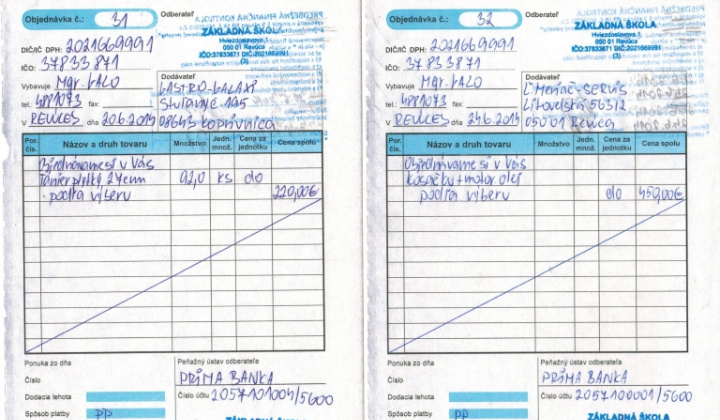 Objednávka č.: 31
Odberateľ
ZÁKLADNÁ ŠKOLA
Hviezdoslavova 1
050 01 Revúca
IČO:37833871 DIČ:2021669991
(3)
DIČ/IČ DPH: 2021669991
IČO: 37833871
Vybavuje Mgr. LALO
Dodávateľ
GASTRO-GALAXI
tel. 4881073 fax:
Štufanye 195
V REVÚCEJ dňa 20.6.2014
08643 Koprivnica
Por. čís.
Názov a druh tovaru
Množstvo
Jedn. množ.
Cena za jednotku
Cena spolu
Objednávame si v Vás
Tanier plytký 24cm 92,0 ks do
podľa výberu 220,00€
Ponuka zo dňa
Peňažný ústav odberateľa
Číslo
PRIMA BANKA
Dodacia lehota
Číslo účtu 2057101004/5600
Spôsob platby PP
ZÁKLADNÁ ŠKOLA
Objednávka č.: 32
Odberateľ
ZÁKLADNÁ ŠKOLA
Hviezdoslavova 1
050 01 Revúca
IČO:37833871 DIČ:2021669991
(3)
DIČ/IČ DPH: 2021669991
IČO: 37833871
Vybavuje Mgr. LALO
Dodávateľ
Ľ. Menač-servis
tel. 4881073 fax:
Litovelská 563/2
V REVÚCEJ dňa 24.6.2014
050 01 Revúca
Por. čís.
Názov a druh tovaru
Množstvo
Jedn. množ.
Cena za jednotku
Cena spolu
Objednávame si v Vás
kosačku + motor. olej
podľa výberu do 450,00€
Ponuka zo dňa
Peňažný ústav odberateľa
Číslo
PRIMA BANKA
Dodacia lehota
Číslo účtu 2057100001/5600
Spôsob platby PP
ZÁKLADNÁ ŠKOLA